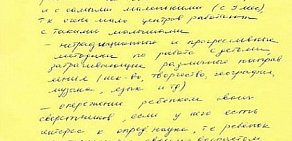 и с самыми маленькими (с 9 мес)
т.к. очень мало центров работают
с такими малышами
- нетрадиционные и прогрессивные
методики по работе с детьми,
затрагивающие различные направ
ления (иск-во, творчество, география,
музыка, язык и тр)
- опережении ребенком своих
сверстников, если у него есть
интерес к опред. наука, т.е ребенок
своим возрастом